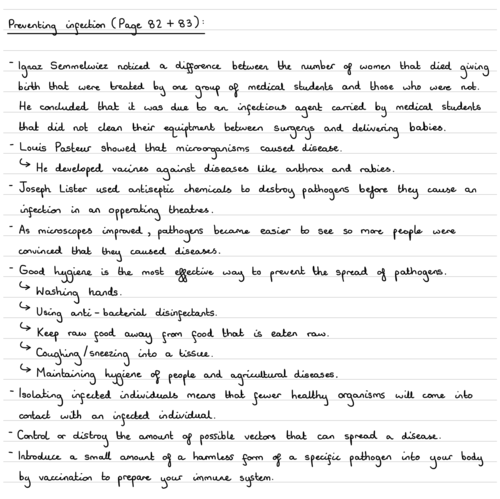 Preventing infection (Page 82 + 83):
- Ignaz Semmelwiez noticed a difference between the number of women that died giving
birth that were treated by one group of medical students and those who were not.
He concluded that it was due to an infectious agent carried by medical students
that did not clean their equiptment between surgerys and delivering babies.
- Louis Pasteur showed that microorganisms caused disease.
↳ He developed vacines against diseases like anthrax and rabies.
- Joseph Lister used antiseptic chemicals to destroy pathogens before they cause an
infection in an opperating theatres.
- As microscopes improved, pathogens became easier to see so more people were
convinced that they caused diseases.
- Good hygiene is the most effective way to prevent the spread of pathogens.
↳ Washing hands.
↳ Using anti-bacterial disinfectants.
↳ Keep raw food away from food that is eaten raw.
↳ Coughing/sneezing into a tissue.
↳ Maintaining hygiene of people and agricultural diseases.
- Isolating infected individuals means that fewer healthy organisms will come into
contact with an infected individual.
- Control or distroy the amount of possible vectors that can spread a disease.
- Introduce a small amount of a harmless form of a specific pathogen into your body
by vaccination to prepare your immune system.